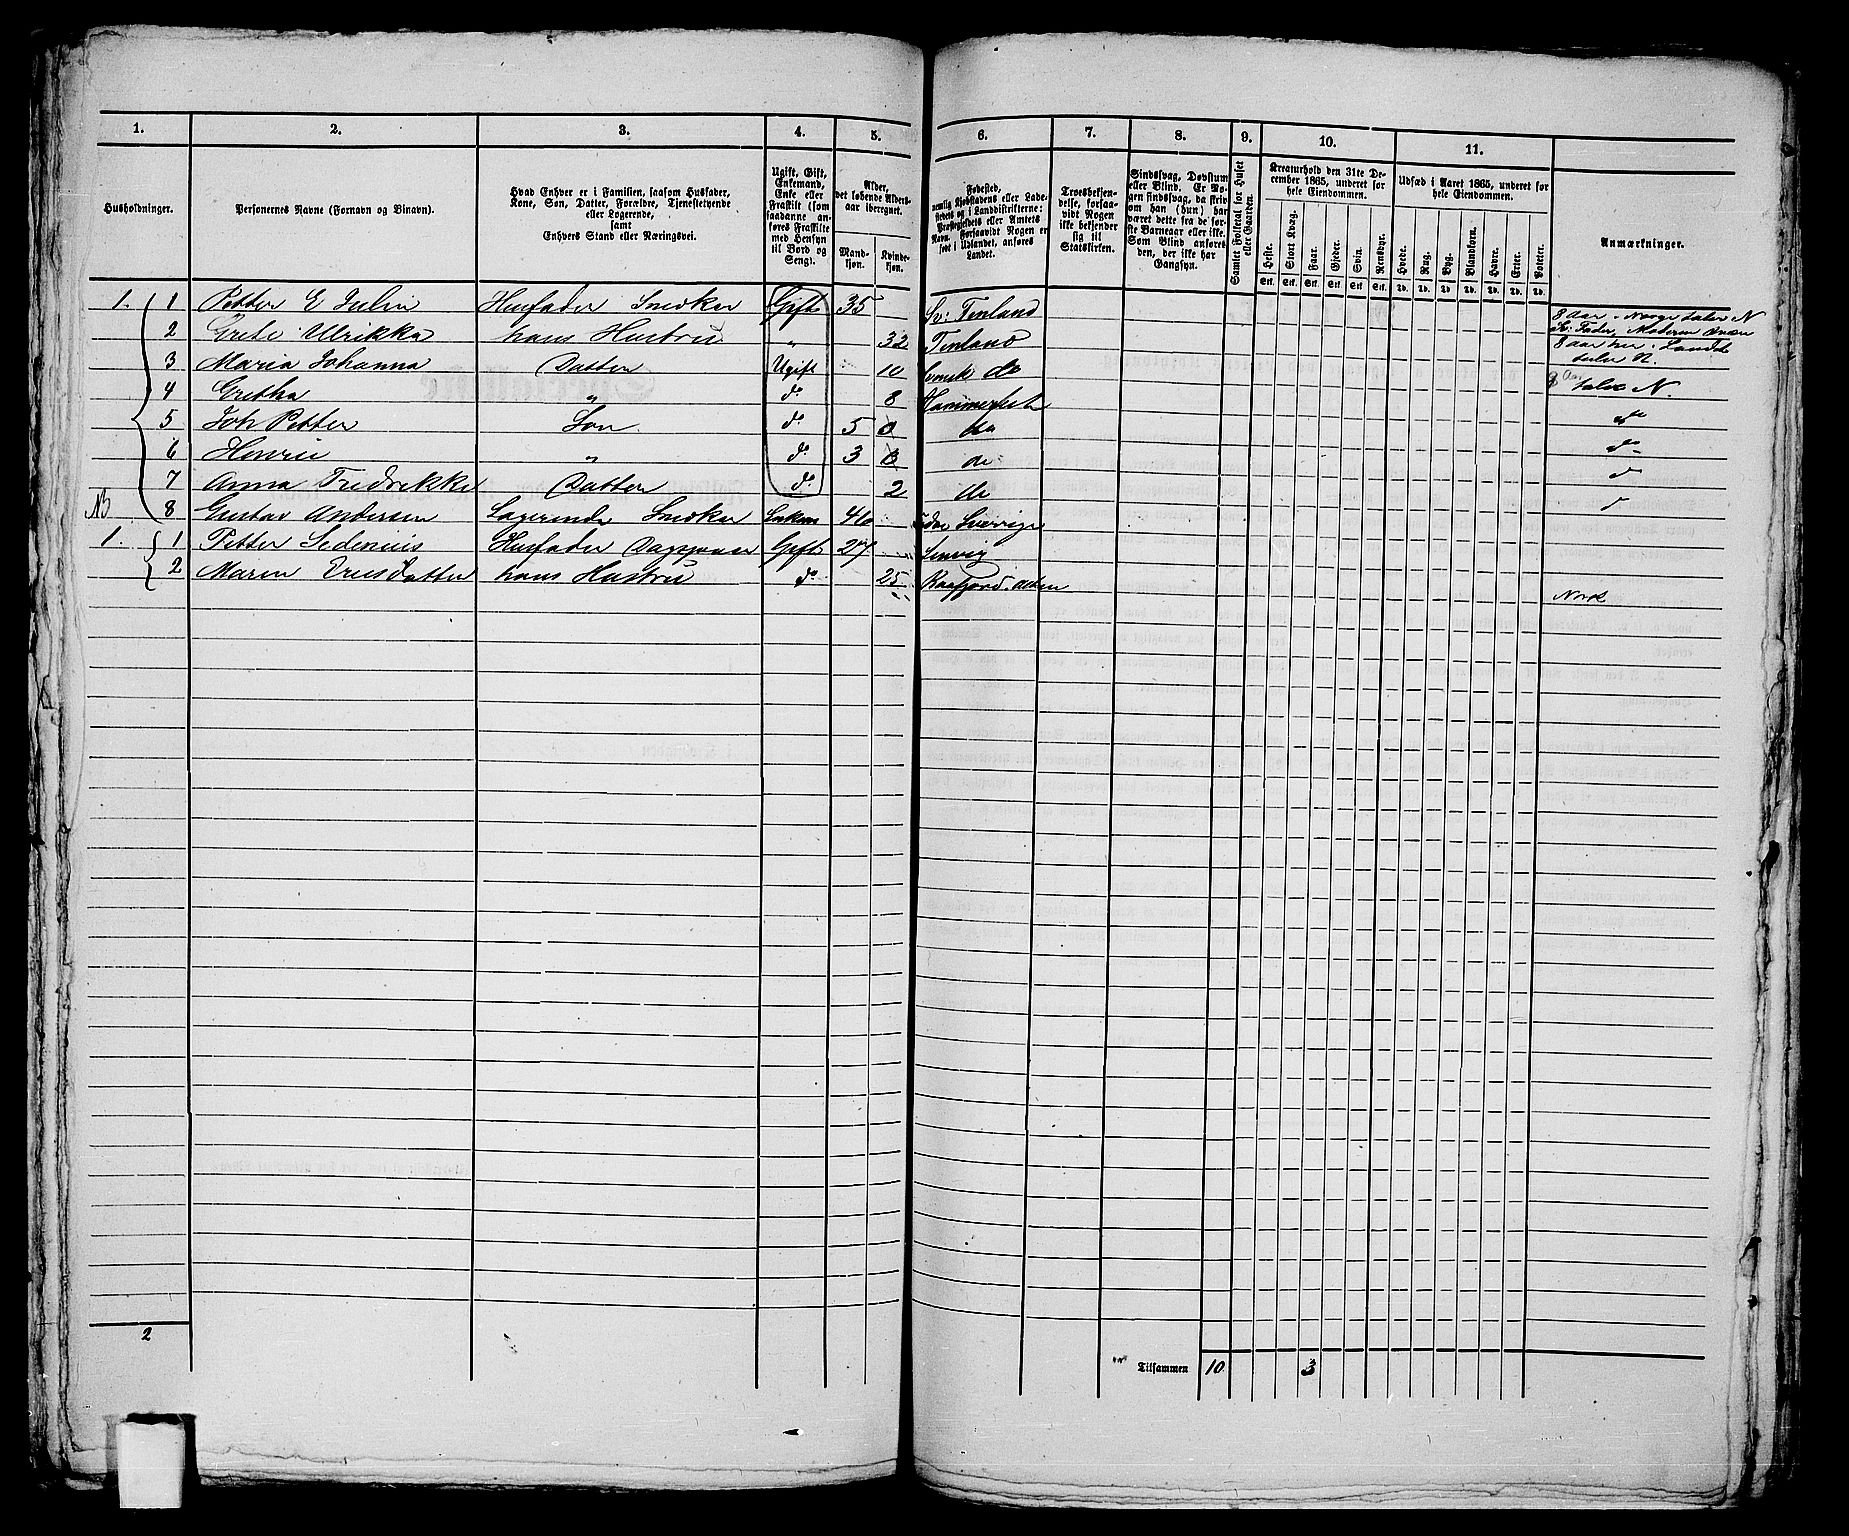 1. 2. 3. 4. 5. 6. 7. 8. 9. 10. 11.
Husholdninger.
Personernes Navne (Fornavn og Binavn).
Hvad Enhver er i Familien, saasom Husfader,
Kone, Søn, Datter, Forældre, Tjenestetyende
eller Logerende,
samt
Enhvers Stand eller Næringsvei.
Ugift, Gift,
Enkemand,
Enke eller
Fraskilt (som
saadanne an-
føres Fraskilte
med Hensyn
til Bord og
Seng).
Alder,
det løbende Alders-
aar iberegnet.
Mand-
kjøn.
Kvinde-
kjøn.
Fødested,
nemlig Kjøbstadens eller Lade-
stedets og i Landdistrikterne:
Præstegjeldets eller Amtets
Navn. Forsaavidt Nogen er
født i Udlandet, anføres
Landet.
Troesbekjen-
delse, forsaa-
vidt Nogen
ikke bekjender
sig til
Statskirken.
Sindssvag, Døvstum
eller Blind. Er No-
gen sindssvag, da skriv
om han (hun) har
været dette fra de før-
ste Barneaar eller ikke.
Som Blind anføres
den, der ikke har
Gangsyn.
Samlet Folketal for Huset
eller Gaarden.
Kreaturhold den 31te De-
cember 1865, underet for
hele Eiendommen.
Heste. Stort Kvæg. Faar. Gjeder. Svin. Rensdyr.
Stk. Stk. Stk. Stk. Stk. Stk.
Udsæd i Aaret 1865, underet for
hele Eiendommen.
Hvede. Rug. Byg. Blandkorn. Havre. Erter. Poteter.
Td. Td. Td. Td. Td. Td. Td.
Anmærkninger.
1. 1 Petter E Julin Husfader Snedker Gift 35 Sv: Finland 8 Aar i Norge taler N
2 Grete Ulrikka hans Hustru " 32 Finland 8 aar her i Landt
3 Maria Johanna Datter Ugift 10 Svensk do taler N.
4 Gretha " do 8 Hammerfest taler N.
5 Joh Petter Søn do 5 do do
6 Henrik " do 3 do do
7 Anna Fredrekke Datter do 2 do
NB 8 Gustav Andersen Logerende Snedker Enkem 46 Sverrige
1. 1 Petter Sedenius Husfader Gift 27 Lenvig
2 Maren Ericsdatter hans Hustru do 25 Kaafjord Alten Norsk
2
Tilsammen 10 3